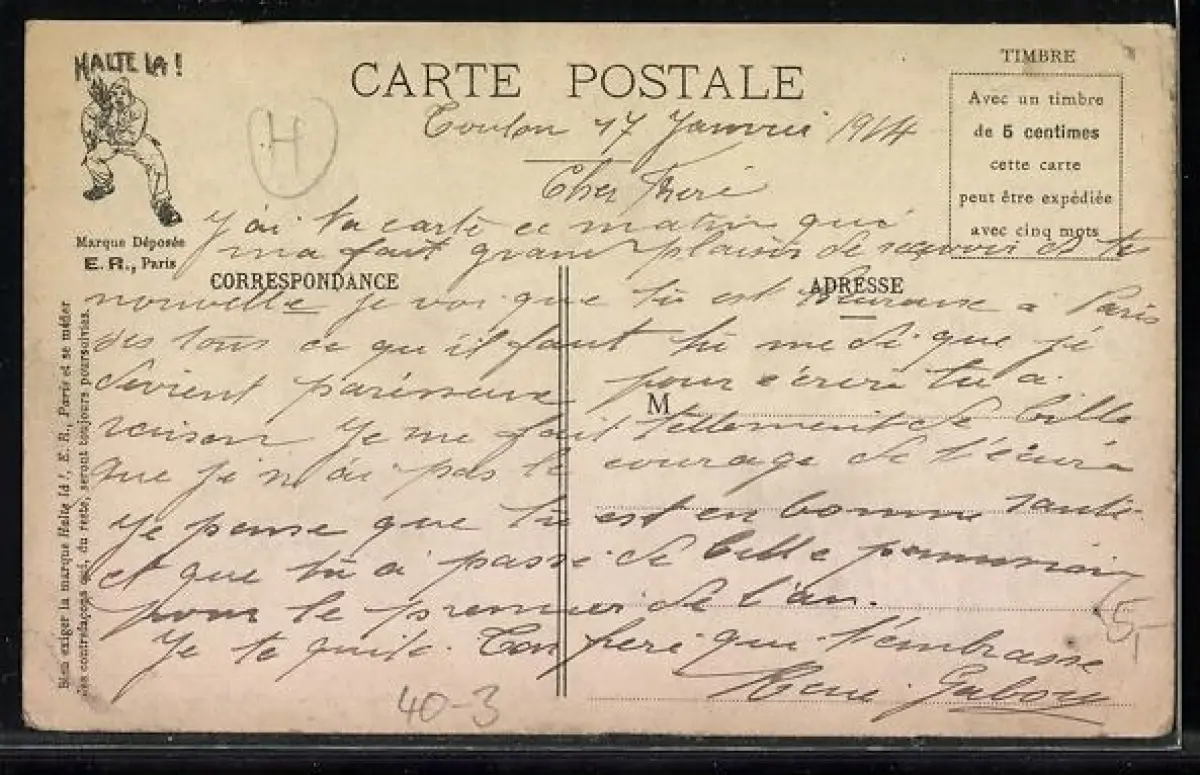 HALTE LA !
Marque Déposée
E. R., Paris
CARTE POSTALE
TIMBRE
Avec un timbre
de 5 centimes
cette carte
peut être expédiée
avec cinq mots
H
Toulon 17 Janvier 1914
Cher Frere
J'ai ta carte ce matin qui
ma fait grand plaisir de recevoir et te
CORRESPONDANCE
ADRESSE
nouvelle je voi que tu est heureuse a Paris
des tous ce qu'il faut tu me di que je
devient parésseuse pour écrire tu a
M
raison je me fait tellement de bille
que je n'ai pas le courage de t'écrire
je pense que tu est en bonne santé
et que tu a passé de belle
pour le premier de l'an.
Je te quite. Ton frere qui t'embrasse
Gabory
Bien exiger la marque Halte là !, E. R., Paris et se méfier
des contrefaçons qui, du reste, seront toujours poursuivies.
40-3
5,-